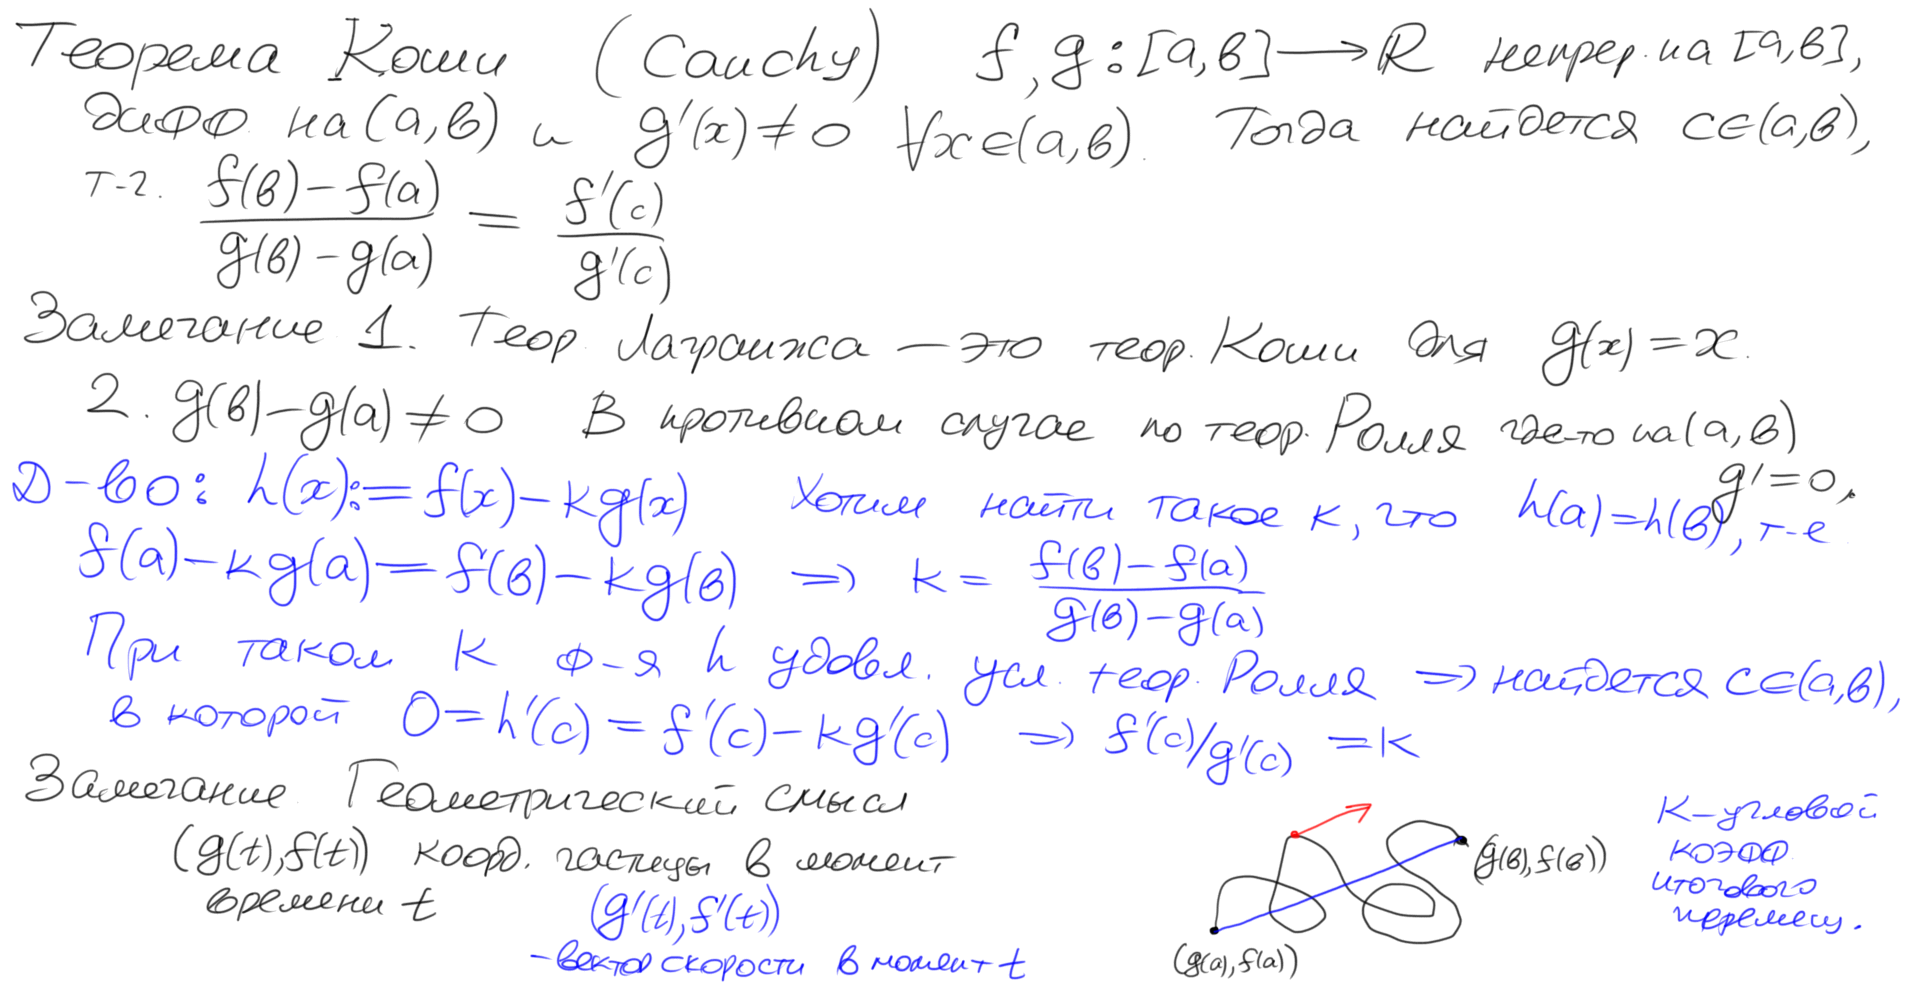 Теорема Коши (Cauchy) f, g : [a,b] → R непрер. на [a,b],
дифф на (a,b) и g'(x) ≠ 0 ∀x∈(a,b). Тогда найдется c∈(a,b),
т-ч. (f(b) − f(a)) / (g(b) − g(a)) = f'(c) / g'(c)
Замечание 1. Теор. Лагранжа — это теор. Коши для g(x) = x.
2. g(b) − g(a) ≠ 0 В противном случае по теор. Ролля где-то на (a,b)
g' = 0.
Д-во: h(x) := f(x) − kg(x) Хотим найти такое k, что h(a) = h(b), т-е
f(a) − kg(a) = f(b) − kg(b) ⇒ k = (f(b) − f(a)) / (g(b) − g(a))
При таком k ф-я h удовл. усл. теор. Ролля ⇒ найдется c∈(a,b),
в которой 0 = h'(c) = f'(c) − kg'(c) ⇒ f'(c)/g'(c) = k
Замечание Геометрический смысл
(g(t), f(t)) коорд. частицы в момент
времени t
(g'(t), f'(t))
– вектор скорости в момент t
(g(a), f(a))
(g(b), f(b))
k – угловой
коэфф
итогового
перемещ.